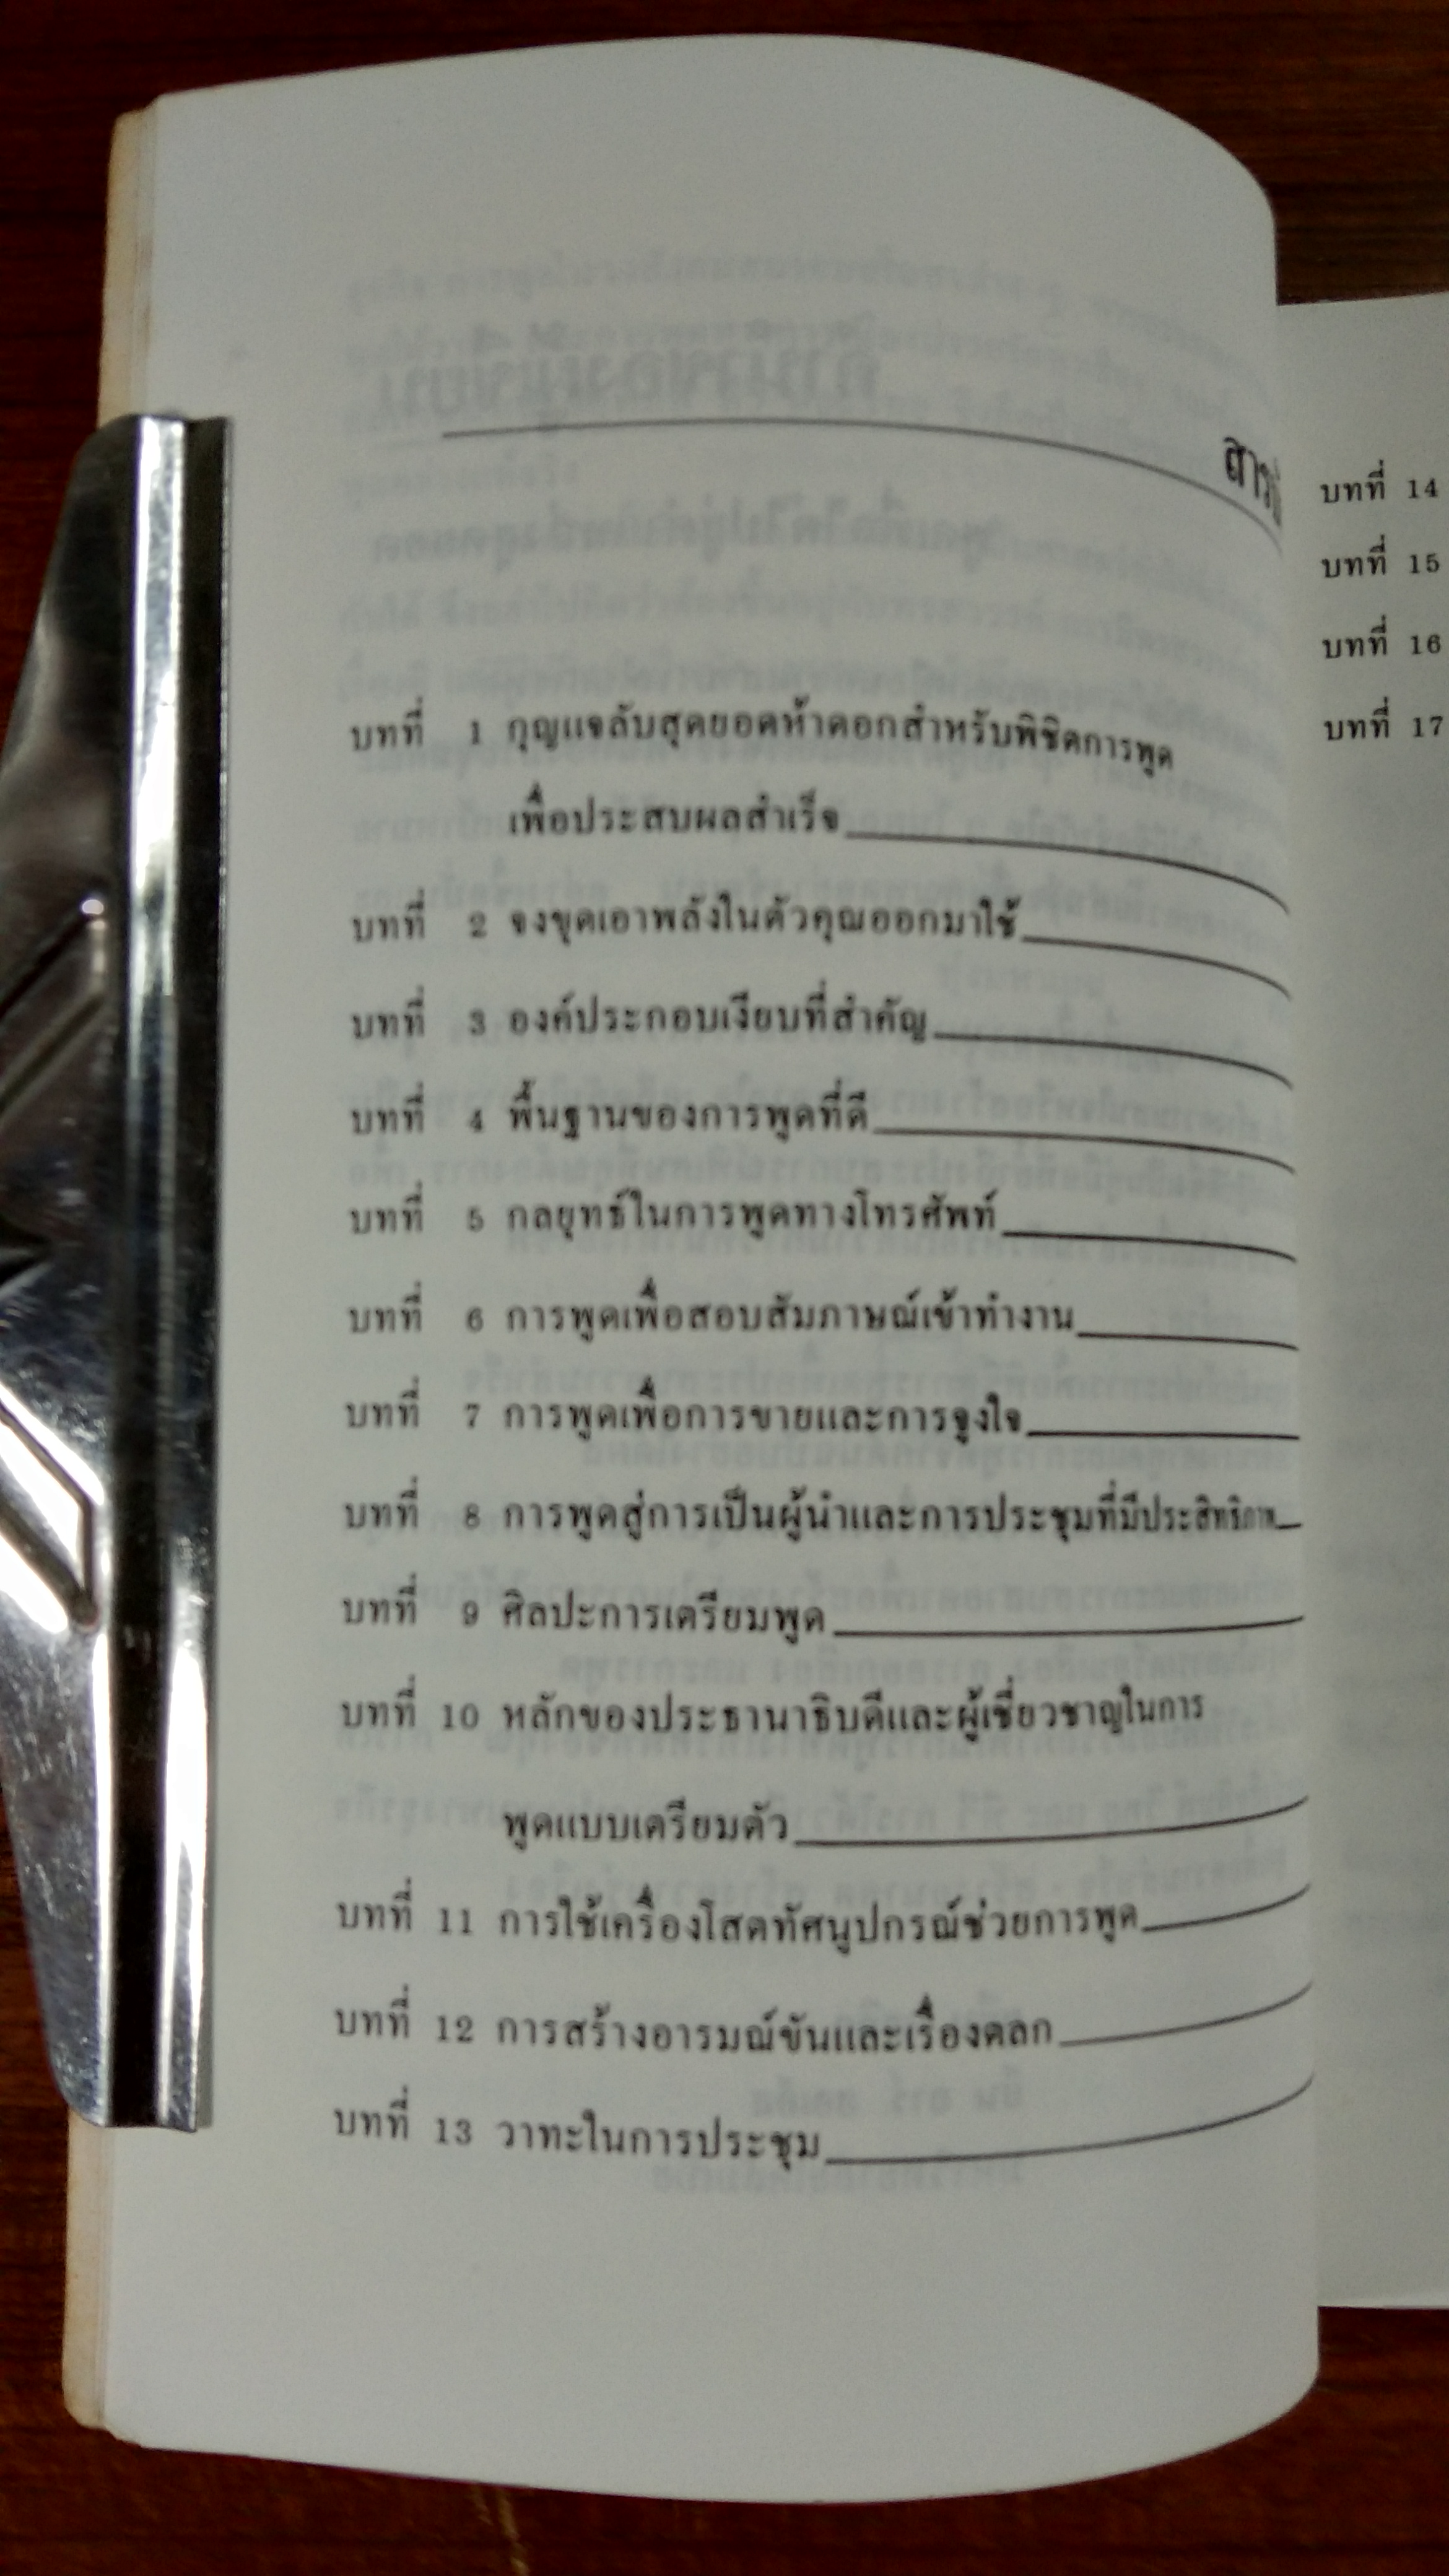 บทที่ 1 กุญแจลับสุดยอดห้าดอกสำหรับพิชิตการพูด
เพื่อประสบผลสำเร็จ
บทที่ 2 จงขุดเอาพลังในตัวคุณออกมาใช้
บทที่ 3 องค์ประกอบเงียบที่สำคัญ
บทที่ 4 พื้นฐานของการพูดที่ดี
บทที่ 5 กลยุทธ์ในการพูดทางโทรศัพท์
บทที่ 6 การพูดเพื่อสอบสัมภาษณ์เข้าทำงาน
บทที่ 7 การพูดเพื่อการขายและการจูงใจ
บทที่ 8 การพูดสู่การเป็นผู้นำและการประชุมที่มีประสิทธิภาพ
บทที่ 9 ศิลปะการเตรียมพูด
บทที่ 10 หลักของประธานาธิบดีและผู้เชี่ยวชาญในการ
พูดแบบเตรียมตัว
บทที่ 11 การใช้เครื่องโสตทัศนูปกรณ์ช่วยการพูด
บทที่ 12 การสร้างอารมณ์ขันและเรื่องตลก
บทที่ 13 วาทะในการประชุม
บทที่ 14
บทที่ 15
บทที่ 16
บทที่ 17